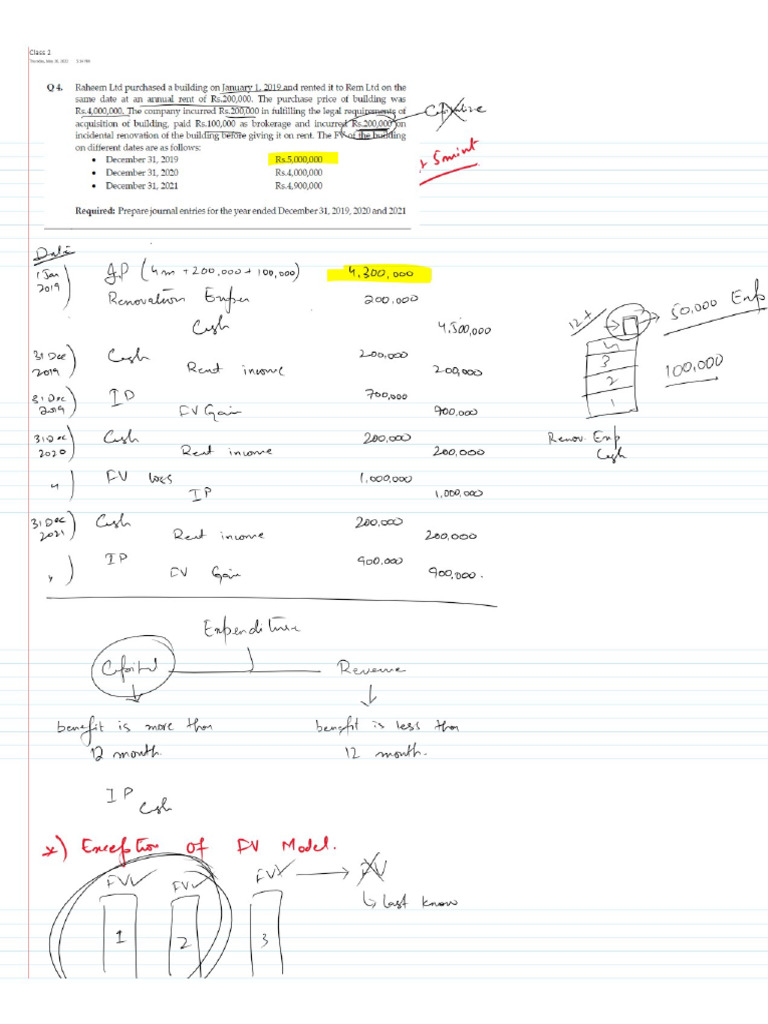 Class 2
Tuesday, May 31, 2022 2:34 PM
Q4. Raheem Ltd purchased a building on January 1, 2019 and rented it to Rem Ltd on the
same date at an annual rent of Rs.200,000. The purchase price of building was
Rs.4,000,000. The company incurred Rs.200,000 in fulfilling the legal requirements of
acquisition of building, paid Rs.100,000 as brokerage and incurred Rs.200,000 on
incidental renovation of the building before giving it on rent. The FV of the building
on different dates are as follows:
• December 31, 2019 Rs.5,000,000
• December 31, 2020 Rs.4,000,000
• December 31, 2021 Rs.4,900,000
Required: Prepare journal entries for the year ended December 31, 2019, 2020 and 2021
5 mint
Date
1 Jan 2019) IP (4m + 200,000 + 100,000) 4,300,000
Renovation Expen 200,000
Cash 4,500,000
31 Dec 2019) Cash 200,000
Rent income 200,000
31 Dec 2019) IP 700,000
FV Gain 700,000
31 Dec 2020) Cash 200,000
Rent income 200,000
") FV loss 1,000,000
IP 1,000,000
31 Dec 2021) Cash 200,000
Rent income 200,000
") IP 900,000
FV Gain 900,000.
12 x
50,000 Exp
100,000
3
2
1
Renov. Exp
Cash
Expenditure
Capital Revenue
benefit is more than
12 month.
benefit is less than
12 month.
IP
Cash
*) Exception of FV Model.
FV✓ FV✓ FVX → FV
↳ last know
1 2 3